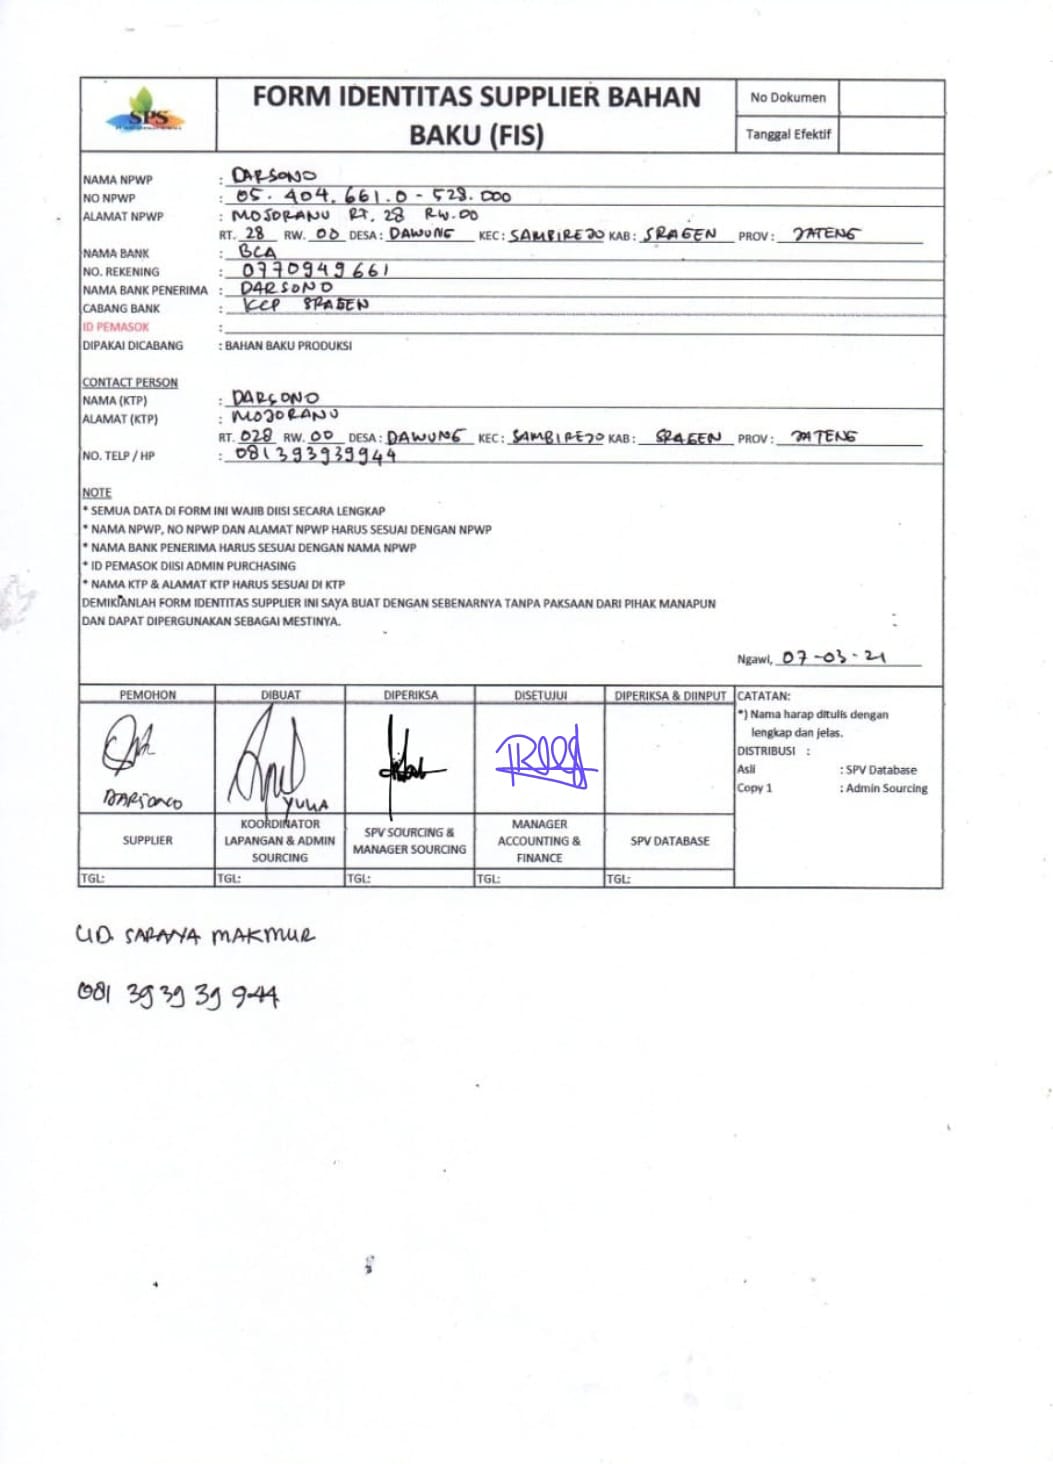 SPS
FORM IDENTITAS SUPPLIER BAHAN
BAKU (FIS)
No Dokumen
Tanggal Efektif
NAMA NPWP : DARSONO
NO NPWP : 05. 404. 661.0 - 528.000
ALAMAT NPWP : MOJORANU RT. 28 RW.00
RT. 28 RW. 00 DESA : DAWUNG KEC : SAMBIREJO KAB : SRAGEN PROV : JATENG
NAMA BANK : BCA
NO. REKENING : 0770949661
NAMA BANK PENERIMA : DARSONO
CABANG BANK : KCP SRAGEN
ID PEMASOK :
DIPAKAI DICABANG : BAHAN BAKU PRODUKSI
CONTACT PERSON
NAMA (KTP) : DARSONO
ALAMAT (KTP) : MOJORANU
RT. 028 RW. 00 DESA : DAWUNG KEC : SAMBIREJO KAB : SRAGEN PROV : JATENG
NO. TELP / HP : 081393939944
NOTE
* SEMUA DATA DI FORM INI WAJIB DIISI SECARA LENGKAP
* NAMA NPWP, NO NPWP DAN ALAMAT NPWP HARUS SESUAI DENGAN NPWP
* NAMA BANK PENERIMA HARUS SESUAI DENGAN NAMA NPWP
* ID PEMASOK DIISI ADMIN PURCHASING
* NAMA KTP & ALAMAT KTP HARUS SESUAI DI KTP
DEMIKIANLAH FORM IDENTITAS SUPPLIER INI SAYA BUAT DENGAN SEBENARNYA TANPA PAKSAAN DARI PIHAK MANAPUN
DAN DAPAT DIPERGUNAKAN SEBAGAI MESTINYA.
Ngawi, 07-03-21
PEMOHON DIBUAT DIPERIKSA DISETUJUI DIPERIKSA & DIINPUT
DARSONO YULIA
SUPPLIER
KOORDINATOR
LAPANGAN & ADMIN
SOURCING
SPV SOURCING &
MANAGER SOURCING
MANAGER
ACCOUNTING &
FINANCE
SPV DATABASE
TGL: TGL: TGL: TGL: TGL:
CATATAN:
*) Nama harap ditulis dengan
lengkap dan jelas.
DISTRIBUSI :
Asli : SPV Database
Copy 1 : Admin Sourcing
UD. SARANA MAKMUR
081 39 39 39 944